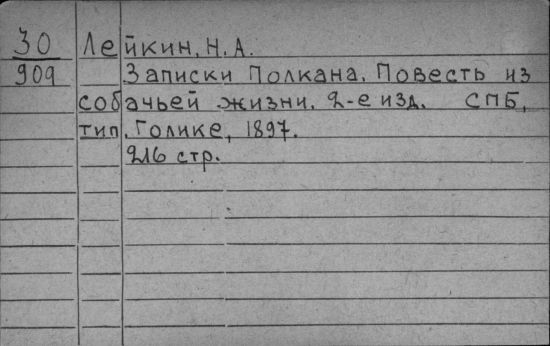 30 Лейкин, Н. А.
909 Записки Полкана. Повесть из
собачьей жизни. 2-е изд. СПБ,
тип. Голике, 1897.
216 стр.